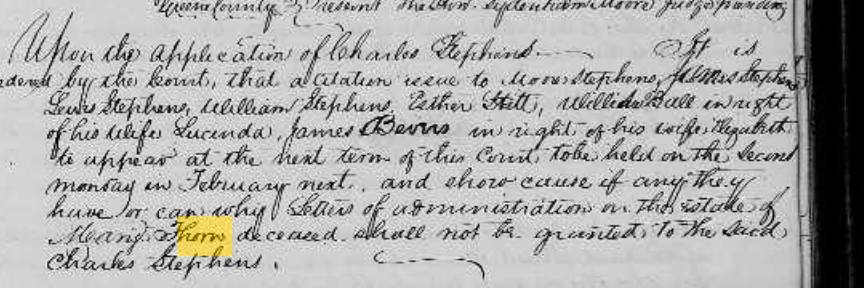 Greene County Present the Hon. Sydenham Moore Judge presiding
Upon the application of Charles Stephens. It is
ordered by the Court, that a citation issue to Moore Stephens, James Stephens
Lewis Stephens, William Stephens, Esther Stitt, William Ball in right
of his wife Lucinda, James Bevers in right of his wife Elizabeth
to appear at the next term of this Court to be held on the second
monday in February next, and show cause if any they
have or can why Letters of administration on the estate of
Thorn deceased shall not be granted to the said
Charles Stephens.